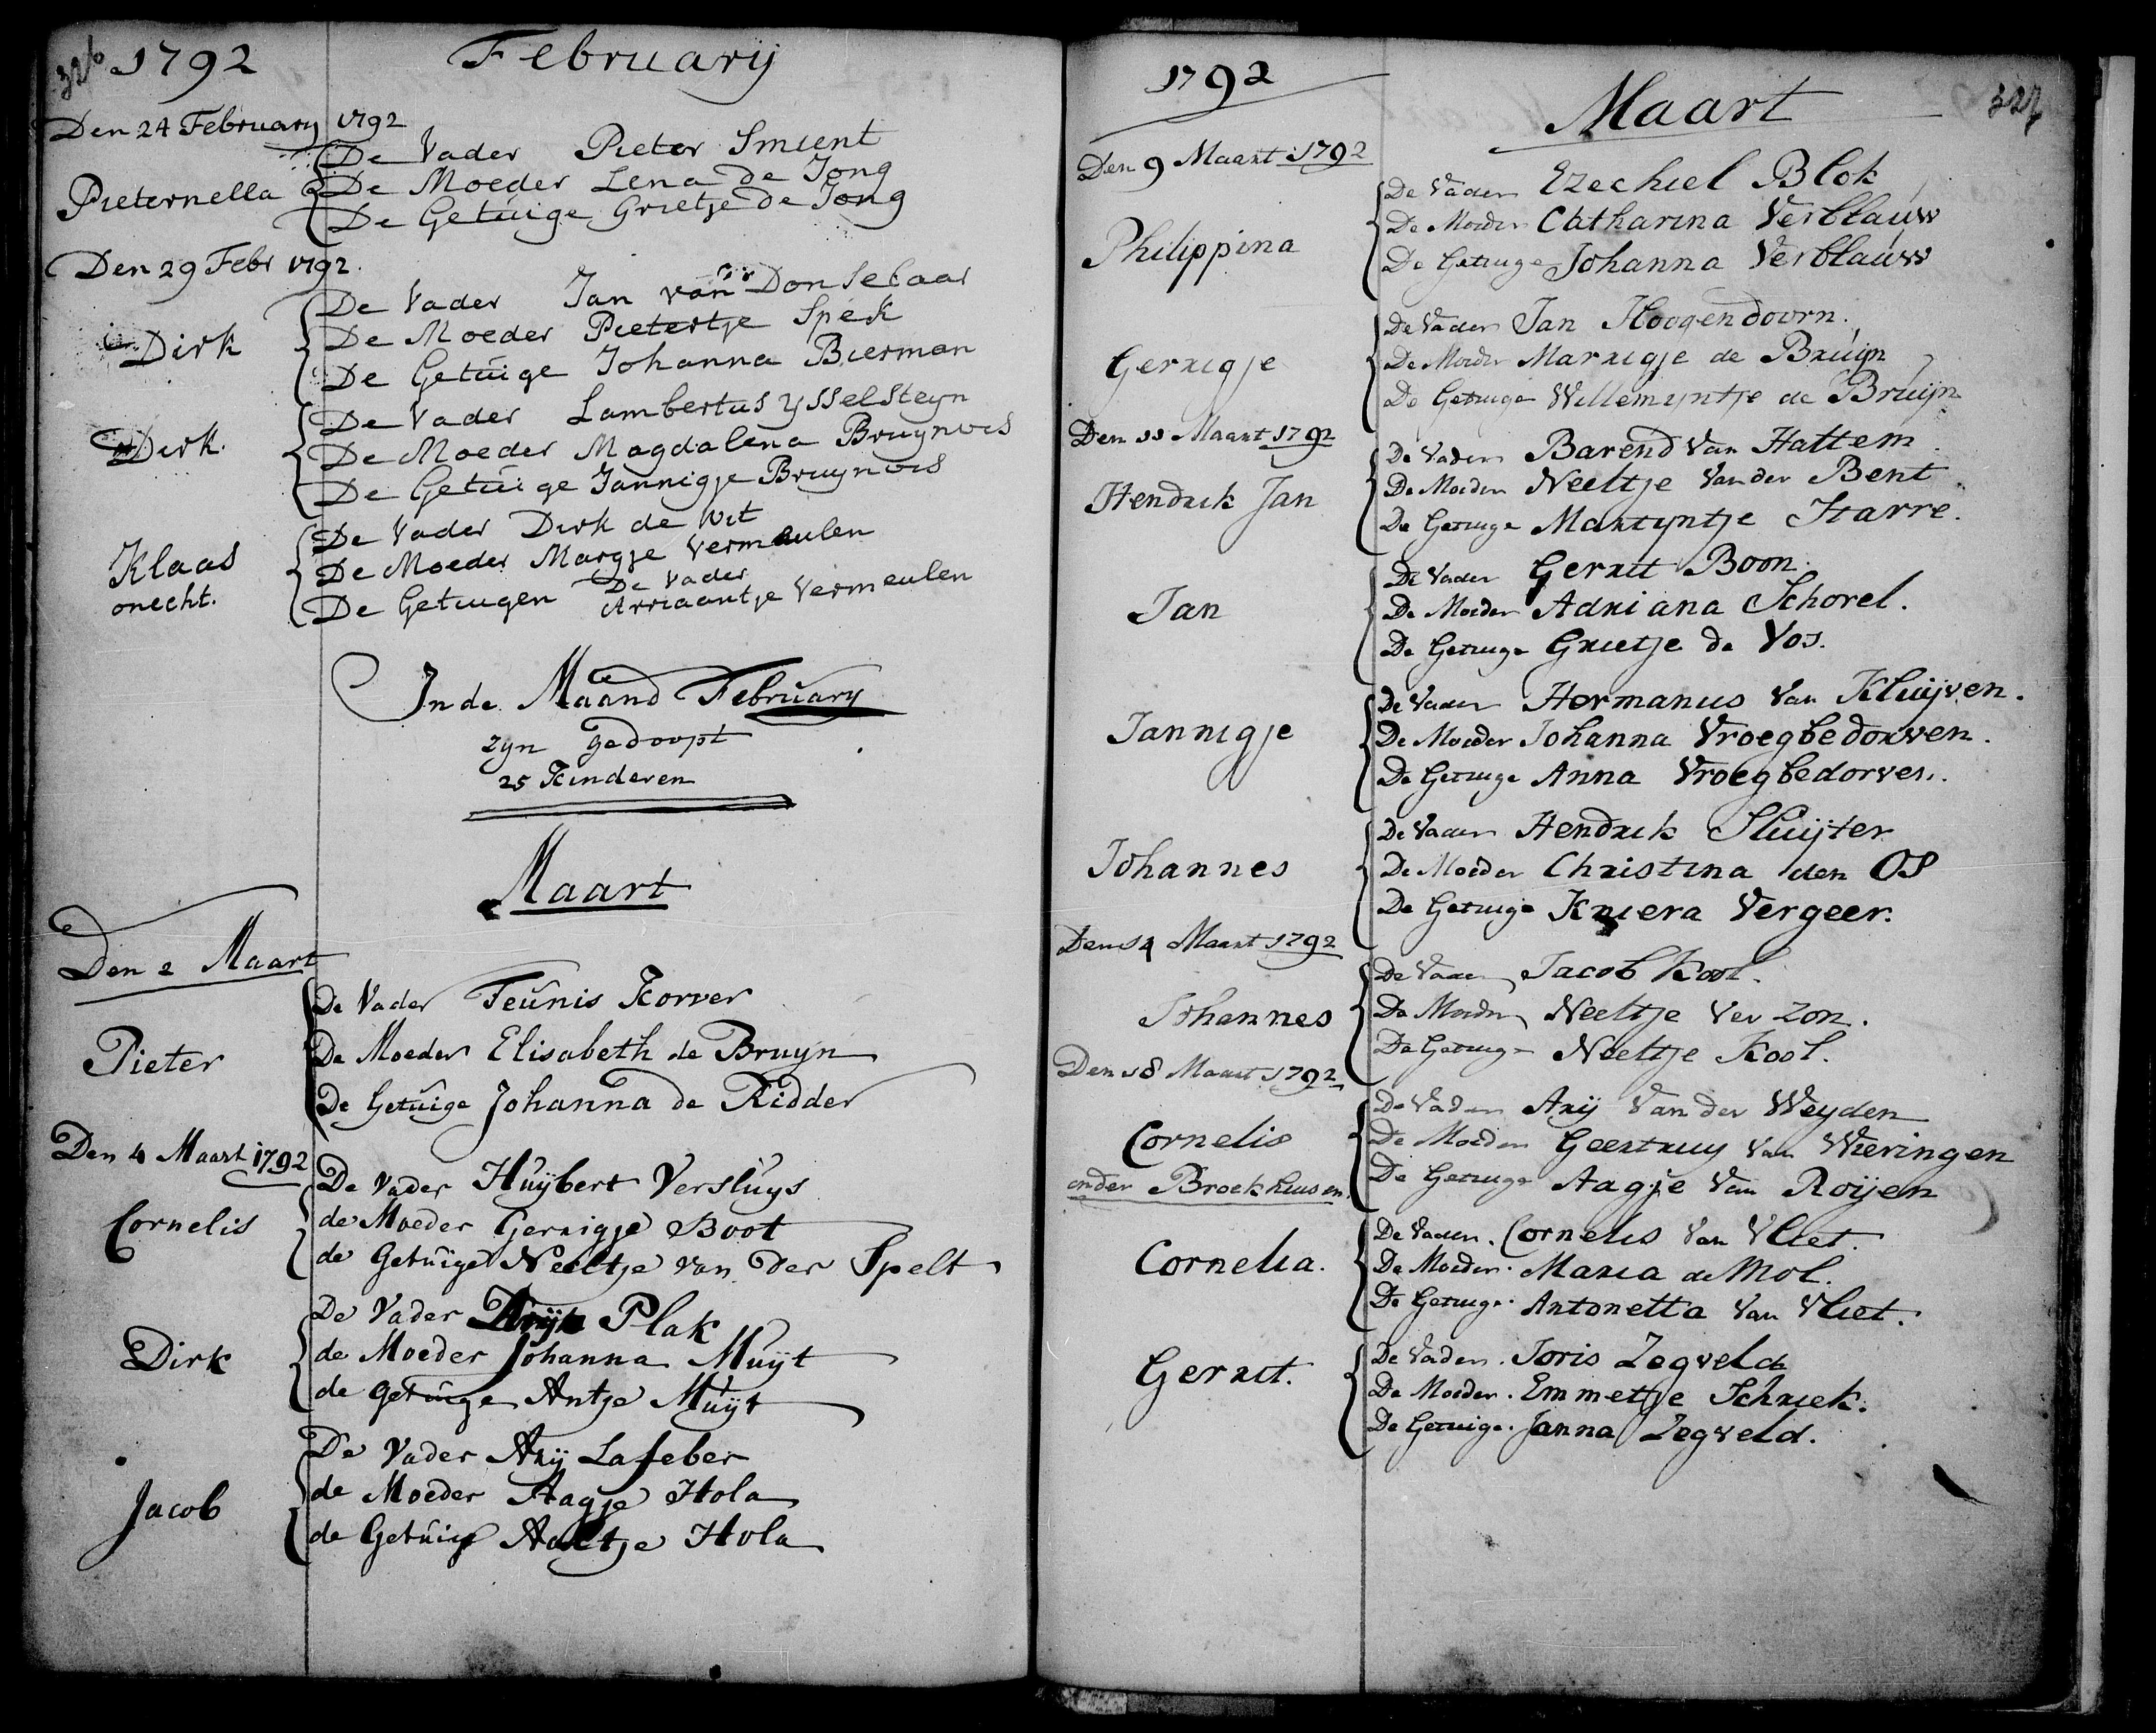 326 1792 February
Den 24 February 1792
De Vader Pieter Smient
Pieternella De Moeder Lena de Jong
De Getuige Grietje de Jong
Den 29 Febr 1792.
De Vader Jan van Donselaar
Dirk De Moeder Pietertje Spek
De Getuige Johanna Bierman
De Vader Lambertus ysselsteyn
Dirk. De Moeder Magdalena Bruynvis
De Getuige Jannigje Bruynvis
De Vader Dirk de Wit
Klaas De Moeder Margje Vermeulen
onecht. De Getuigen De Vader
Arriaantje Vermeulen
In de Maand February
zyn gedoopt
25 Kinderen
Maart
Den 2 Maart
De Vader Teunis Korver
Pieter De Moeder Elisabeth de Bruyn
De Getuige Johanna de Ridder
Den 4 Maart 1792
De Vader Huijbert Versluys
Cornelis de Moeder Gerrigje Boot
de Getuige Neeltje van der Spelt
De Vader Plak
Dirk de Moeder Johanna Muijt
de getuige Antje Muijt
De Vader Arij Lafeber
Jacob de Moeder Aagje Hola
de Getuige Aaltje Hola
1792 Maart 327
Den 9 Maart 1792
De Vader Ezechiel Blok
Philippina De Moeder Catharina Verblauw
De Getuige Johanna Verblauw
De Vader Jan Hoogendoorn.
Gerrigje De Moeder Marrigje de Bruijn
De Getuige Willemyntje de Bruijn
Den 11 Maart 1792
De Vader Barend Van Hattem
Hendrik Jan De Moeder Neeltje Van der Bent
De Getuige Martyntje Karre.
De Vader Gerrit Boon.
Jan De Moeder Adriana Schorel.
De Getuige Grietje de Vos.
De Vader Hermanus Van Kluijven.
Jannigje De Moeder Johanna Vroegbedorven.
De Getuige Anna Vroegbedorven.
De Vader Hendrik Sluijter
Johannes De Moeder Christina den Os
De Getuige Kniera Vergeer.
Den 14 Maart 1792
De Vader Jacob Kool.
Johannes De Moeder Neeltje Ver Zon.
De Getuige Neeltje Kool.
Den 18 Maart 1792
De Vader Arij Van der Weyden
Cornelis De Moeder Geertruy Van Wieringen
onder Broekhuisen. De Getuige Aagje Van Roijen
De Vader. Cornelis Van Vliet.
Cornelia. De Moeder. Maria de Mol.
De Getuige. Antonetta Van Vliet.
De Vader. Joris Zegveld
Gerrit. De Moeder. Emmetje Schriek.
De Getuige. Janna Zegveld.